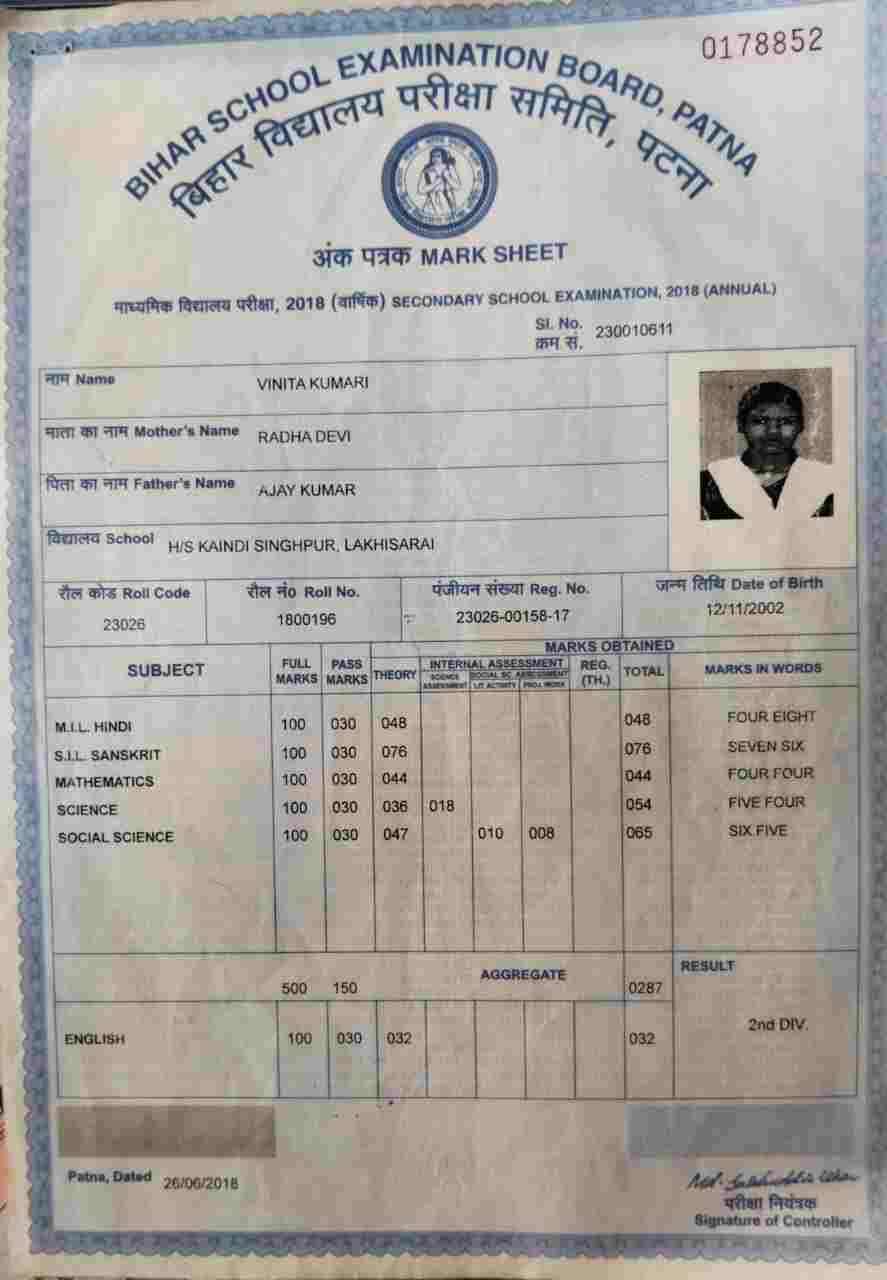 0178852
BIHAR SCHOOL EXAMINATION BOARD, PATNA
बिहार विद्यालय परीक्षा समिति, पटना
अंक पत्रक MARK SHEET
माध्यमिक विद्यालय परीक्षा, 2018 (वार्षिक) SECONDARY SCHOOL EXAMINATION, 2018 (ANNUAL)
Sl. No.
क्रम सं. 230010611
नाम Name VINITA KUMARI
माता का नाम Mother's Name RADHA DEVI
पिता का नाम Father's Name AJAY KUMAR
विद्यालय School H/S KAINDI SINGHPUR, LAKHISARAI
रौल कोड Roll Code रौल नं० Roll No. पंजीयन संख्या Reg. No. जन्म तिथि Date of Birth
23026 1800196 23026-00158-17 12/11/2002
MARKS OBTAINED
SUBJECT FULL MARKS PASS MARKS THEORY INTERNAL ASSESSMENT REG. (TH.) TOTAL MARKS IN WORDS
SCIENCE ASSESSMENT SOCIAL SC. ASSESSMENT
LIT ACTIVITY PROJ. WORK
M.I.L. HINDI 100 030 048 048 FOUR EIGHT
S.I.L. SANSKRIT 100 030 076 076 SEVEN SIX
MATHEMATICS 100 030 044 044 FOUR FOUR
SCIENCE 100 030 036 018 054 FIVE FOUR
SOCIAL SCIENCE 100 030 047 010 008 065 SIX FIVE
AGGREGATE RESULT
500 150 0287
2nd DIV.
ENGLISH 100 030 032 032
Patna, Dated 26/06/2018
परीक्षा नियंत्रक
Signature of Controller